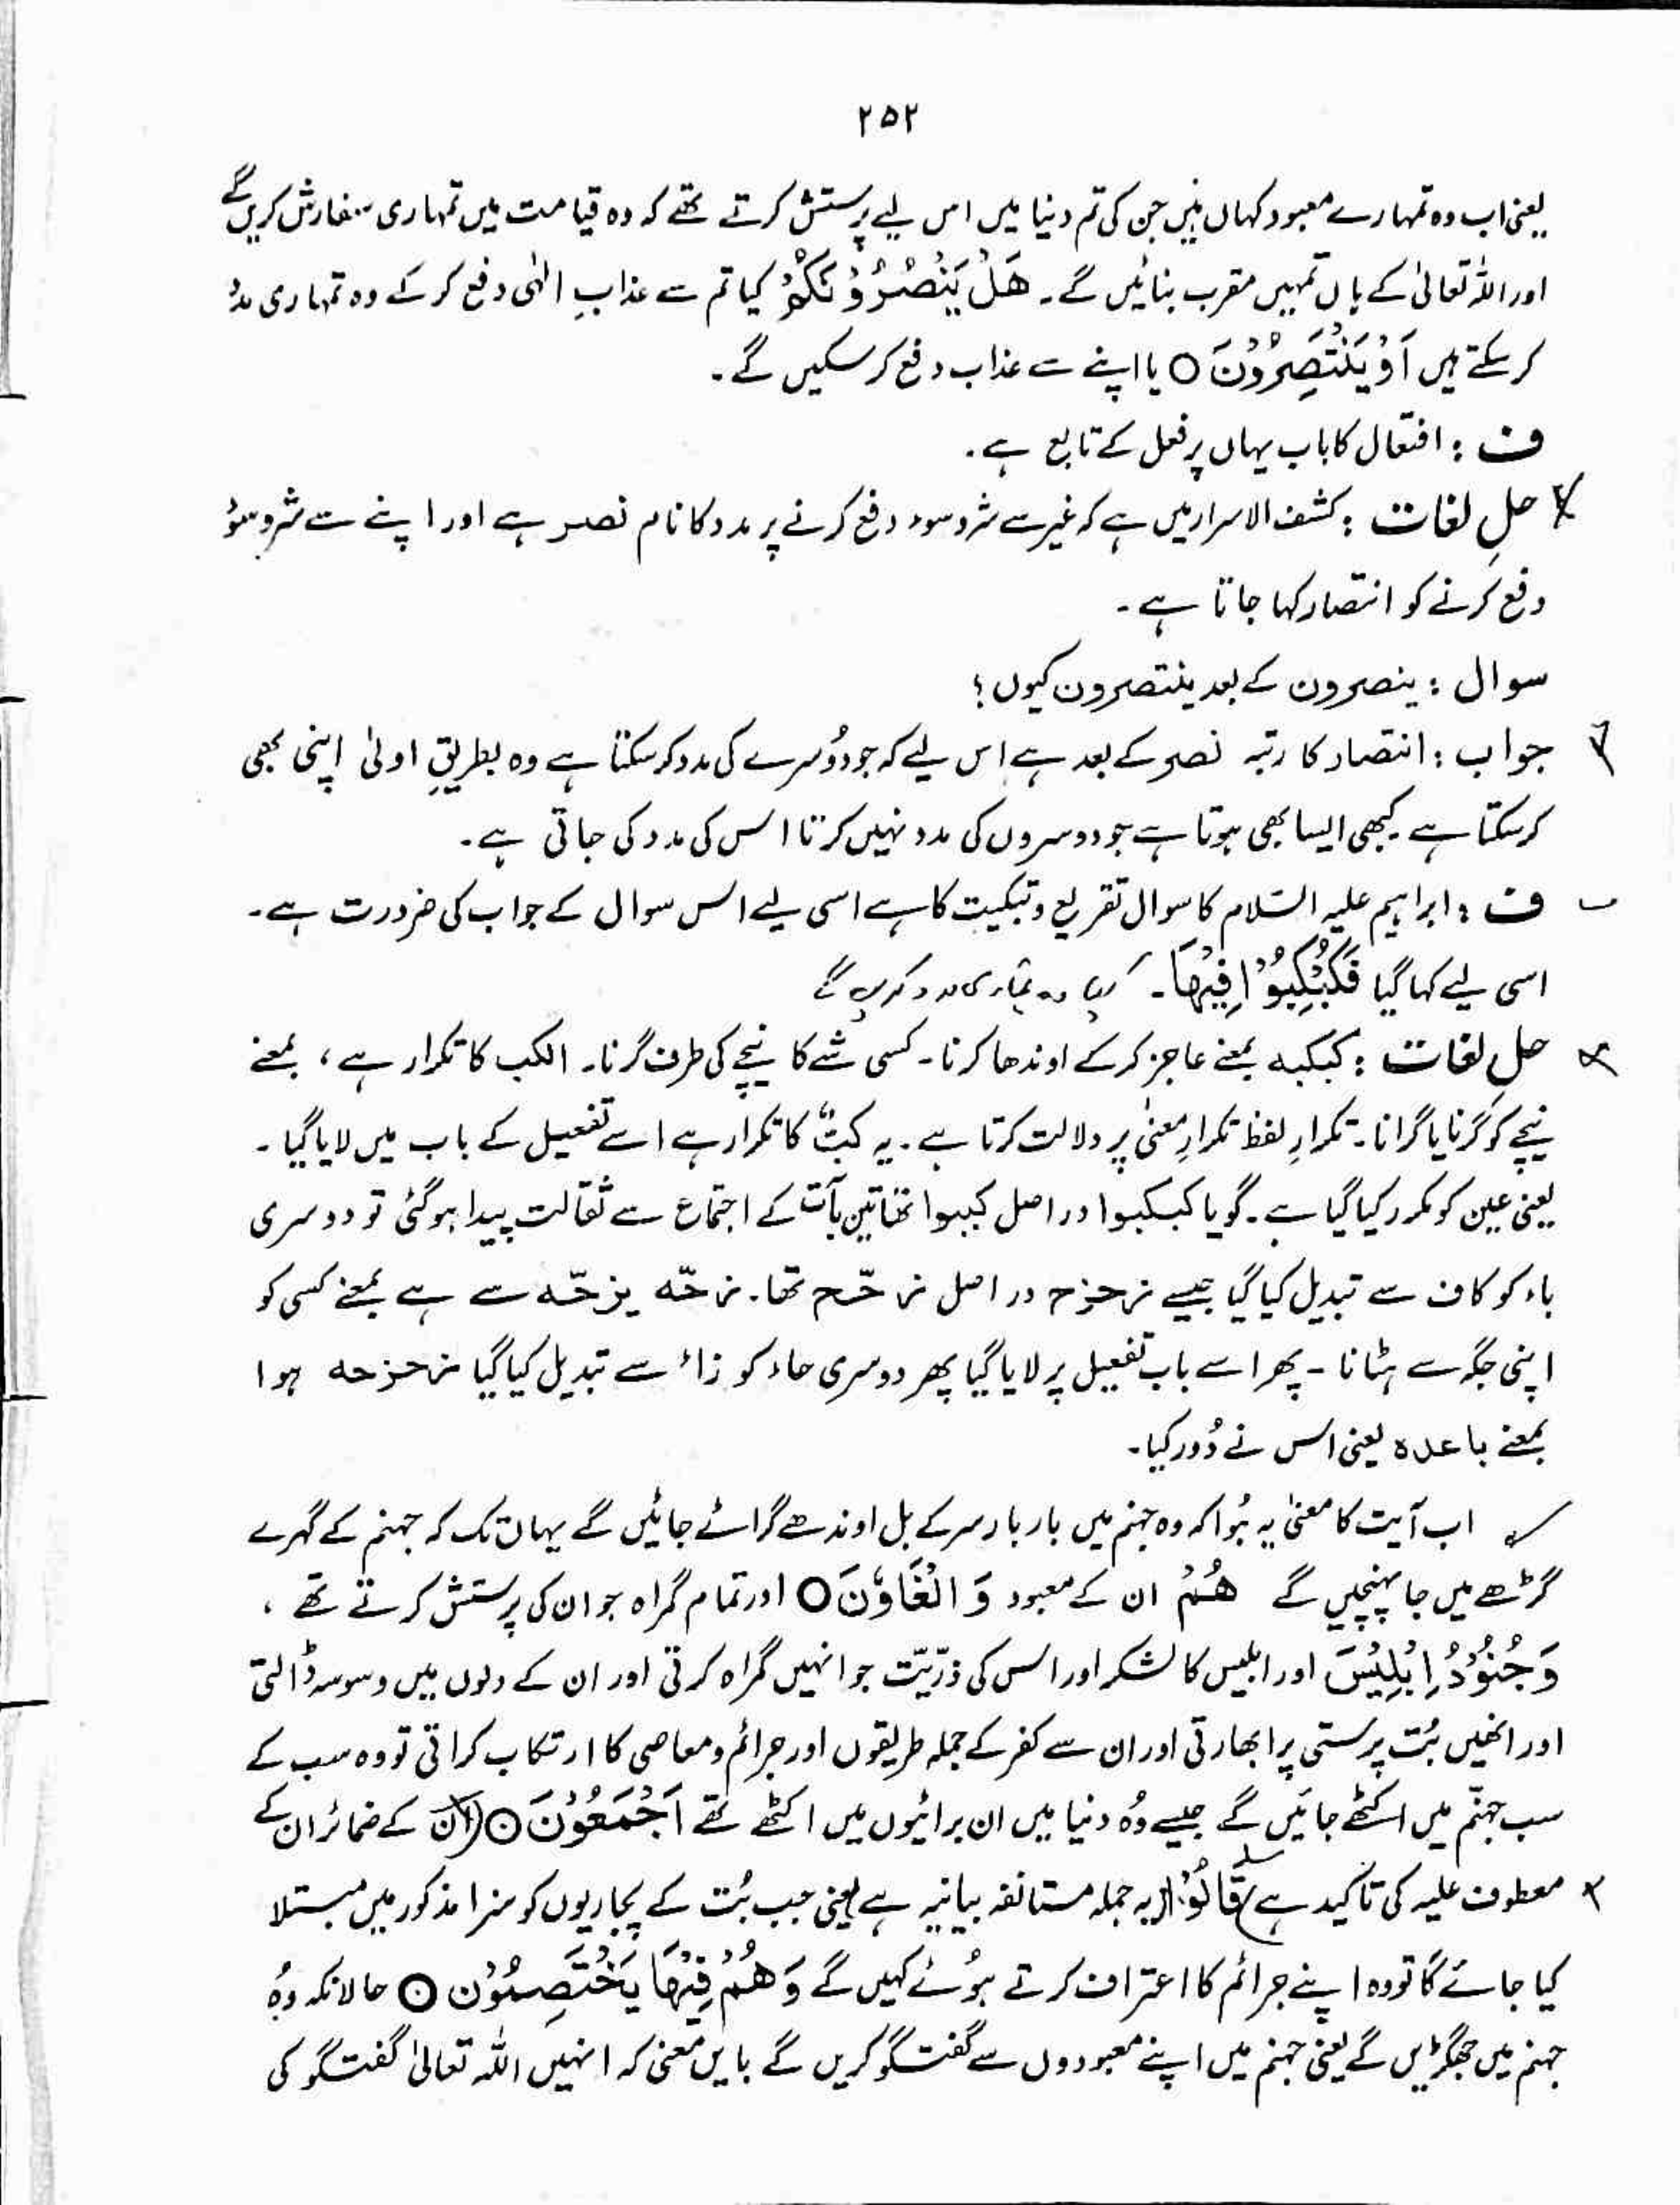 ۲۵۲
یعنی اب وہ تمہارے معبود کہاں ہیں جن کی تم دنیا میں اس لیے پرستش کرتے تھے کہ وہ قیامت میں تمہاری سفارش کریں گے
اور اللہ تعالیٰ کے ہاں تمہیں مقرب بنائیں گے۔ هَلْ يَنْصُرُوْنَكُمْ کیا تم سے عذابِ الٰہی دفع کر کے وہ تمہاری مدد
کر سکتے ہیں اَوْ يَنْتَصِرُوْنَ ○ یا اپنے سے عذاب دفع کر سکیں گے۔
ف : افتعال کا باب یہاں پر فعل کے تابع ہے۔
حلِ لغات : کشف الاسرار میں ہے کہ غیر سے شر و سوء دفع کرنے پر مدد کا نام نصر ہے اور اپنے سے شر و سوء
دفع کرنے کو انتصار کہا جاتا ہے۔
سوال : ینصرون کے بعد ینتصرون کیوں؟
جواب : انتصار کا رتبہ نصر کے بعد ہے اس لیے کہ جو دُوسرے کی مدد کر سکتا ہے وہ بطریقِ اولیٰ اپنی بھی
کر سکتا ہے کبھی ایسا بھی ہوتا ہے جو دوسروں کی مدد نہیں کرتا اس کی مدد کی جاتی ہے۔
ف : ابراہیم علیہ السّلام کا سوال تقریع و تبکیت کا ہے اسی لیے اس سوال کے جواب کی ضرورت ہے۔
اسی لیے کہا گیا فَكُبْكِبُوْا فِيْهَا۔ کیا وہ تمہاری مدد کریں گے
حلِ لغات : کبکبہ بمعنے عاجز کر کے اوندھا کرنا۔ کسی شے کا نیچے کی طرف گرنا۔ الکب کا تکرار ہے، بمعنے
نیچے کو گرنا یا گرانا۔ تکرارِ لفظ تکرارِ معنیٰ پر دلالت کرتا ہے۔ یہ کبّ کا تکرار ہے اسے تفعیل کے باب میں لایا گیا۔
یعنی عین کو مکرر کیا گیا ہے۔ گویا کبکبوا دراصل کببوا تھا تین بآت کے اجتماع سے ثقالت پیدا ہو گئی تو دوسری
باء کو کاف سے تبدیل کیا گیا جیسے زحزح دراصل زحّح تھا۔ زحّہ یزحّہ سے ہے بمعنے کسی کو
اپنی جگہ سے ہٹانا۔ پھر اسے باب تفعیل پر لایا گیا پھر دوسری حاء کو زاء سے تبدیل کیا گیا زحزحہ ہوا
بمعنے باعدہ یعنی اس نے دُور کیا۔
اب آیت کا معنیٰ یہ ہُوا کہ وہ جہنم میں بار بار سر کے بل اوندھے گرائے جائیں گے یہاں تک کہ جہنم کے گہرے
گڑھے میں جا پہنچیں گے هُمْ ان کے معبود وَ الْغَاوٗنَ ○ اور تمام گمراہ جو ان کی پرستش کرتے تھے ،
وَ جُنُوْدُ اِبْلِيْسَ اور ابلیس کا لشکر اور اس کی ذرّیّت جو انہیں گمراہ کرتی اور ان کے دلوں میں وسوسہ ڈالتی
اور انھیں بُت پرستی پر ابھارتی اور ان سے کفر کے جملہ طریقوں اور جرائم و معاصی کا ارتکاب کراتی تو وہ سب کے
سب جہنّم میں اکٹھے جائیں گے جیسے وُہ دنیا میں ان برائیوں میں اکٹھے تھے اَجْمَعُوْنَ ○ (ان کے ضمائر ان کے
معطوف علیہ کی تاکید ہے) قَالُوْا (یہ جملہ مستانفہ بیانیہ ہے یعنی جب بُت کے پجاریوں کو سزا مذکور میں مبتلا
کیا جائے گا تو وہ اپنے جرائم کا اعتراف کرتے ہُوئے کہیں گے وَ هُمْ فِيْهَا يَخْتَصِمُوْن ○ حالانکہ وُہ
جہنم میں جھگڑیں گے یعنی جہنم میں اپنے معبودوں سے گفتگو کریں گے بایں معنی کہ انہیں اللہ تعالیٰ گفتگو کی